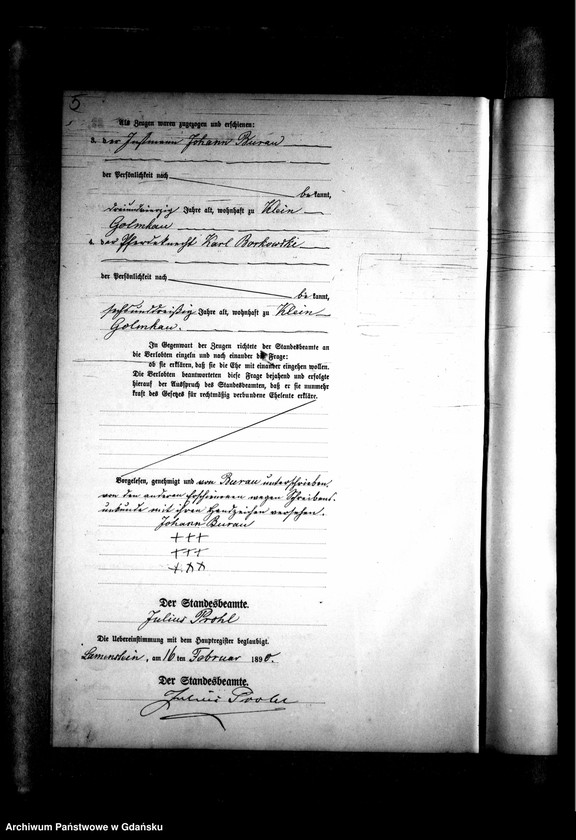 5
Als Zeugen waren zugezogen und erschienen:
3. der Instmann Johann Burau
der Persönlichkeit nach
bekannt,
dreiundvierzig Jahre alt, wohnhaft zu Klein
Golmkau
4. der Pferdeknecht Karl Borkowski
der Persönlichkeit nach
bekannt,
sechsunddreißig Jahre alt, wohnhaft zu Klein
Golmkau.
In Gegenwart der Zeugen richtete der Standesbeamte an
die Verlobten einzeln und nach einander die Frage:
ob sie erklären, daß sie die Ehe mit einander eingehen wollen.
Die Verlobten beantworteten diese Frage bejahend und erfolgte
hierauf der Ausspruch des Standesbeamten, daß er sie nunmehr
kraft des Gesetzes für rechtmäßig verbundene Eheleute erkläre.
Vorgelesen, genehmigt und von Burau unterschrieben,
von den anderen Erschienenen wegen Schreibens-
unkunde mit ihren Handzeichen versehen.
Johann Burau
+++
+++
+++
Der Standesbeamte.
Julius Prohl
Die Uebereinstimmung mit dem Hauptregister beglaubigt.
Lamenstein, am 16 ten Februar 1890.
Der Standesbeamte.
Julius Prohl
Archiwum Państwowe w Gdańsku